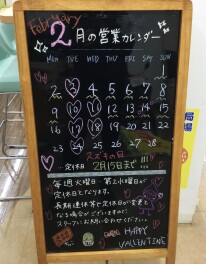 February
2月の営業カレンダー
MON TUE WED THU FRI SAT SUN
1
2 3 4 5 6 7 8
9 10 11 12 13 14 15
16 17 18 19 20 21 22
23 24 25 26 27 28
スズキの日
定休日 2月15日まで!!!
毎週火曜日 第2水曜日が
定休日となります。
長期連休等で定休日が変更と
なる場合がございますので
スタッフにお問い合わせください。
HAPPY
VALENTINE